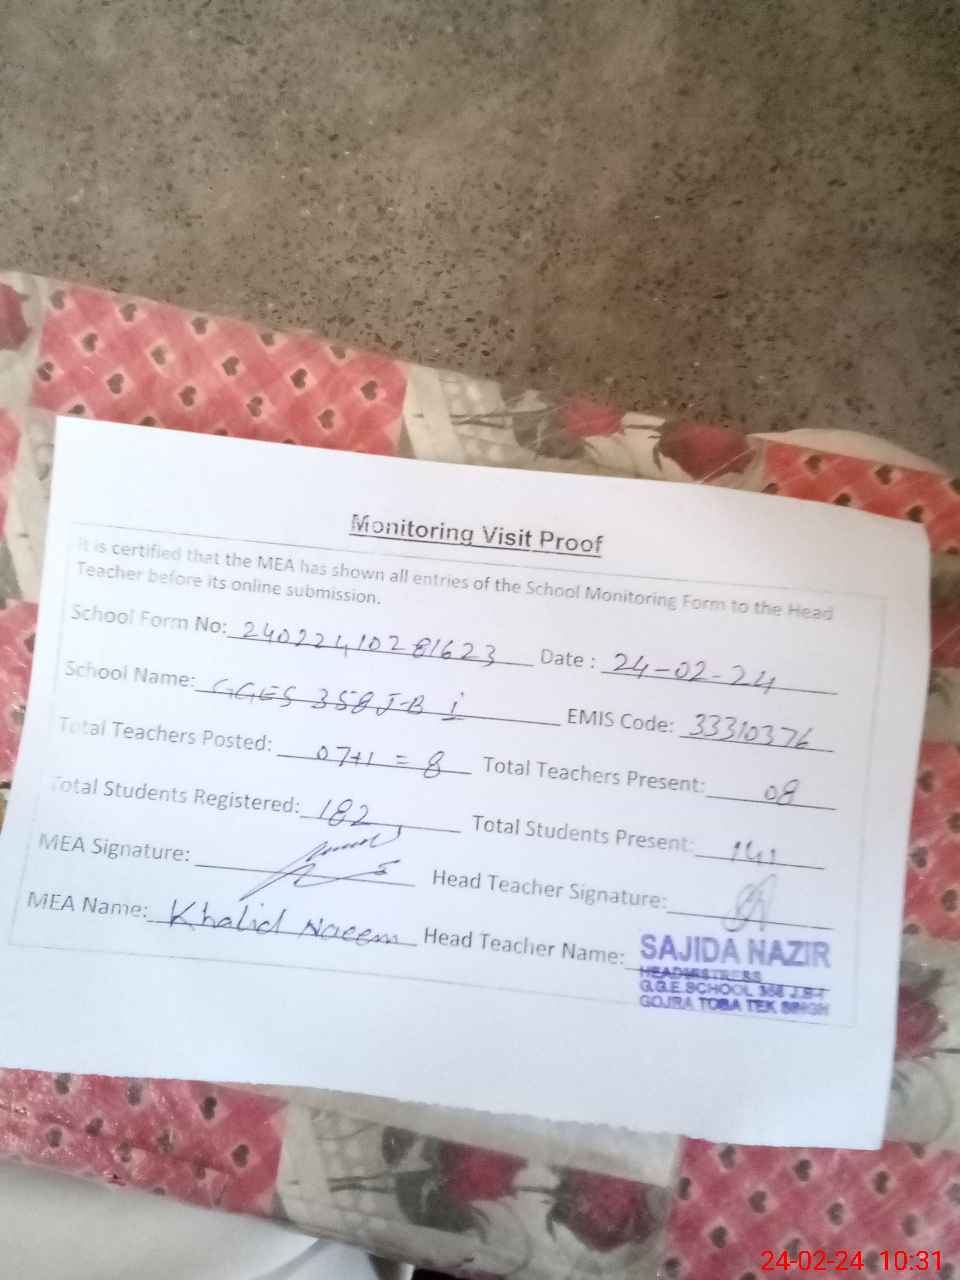 Monitoring Visit Proof
It is certified that the MEA has shown all entries of the School Monitoring Form to the Head
Teacher before its online submission.
School Form No: 24022410281623 Date : 24-02-24
School Name: GGES 358 J-B i EMIS Code: 33310376
Total Teachers Posted: 07+1 = 8 Total Teachers Present: 08
Total Students Registered: 182 Total Students Present: 141
MEA Signature: Head Teacher Signature:
MEA Name: Khalid Naeem Head Teacher Name: SAJIDA NAZIR
HEADMISTRESS
G.G.E.SCHOOL 358 J.B-I
GOJRA TOBA TEK SINGH
24-02-24 10:31